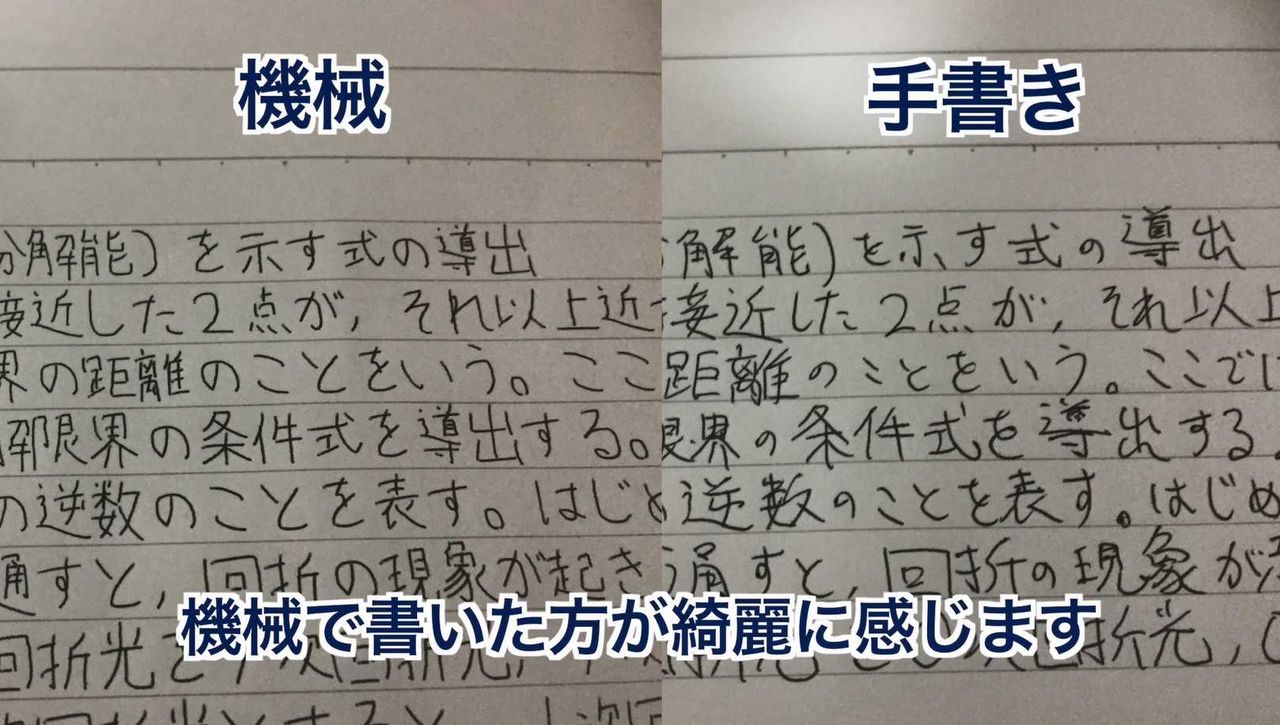 機械
分解能)を示す式の導出
接近した2点が,それ以上近
界の距離のことをいう。ここ
解限界の条件式を導出する。
の逆数のことを表す。はじめ
通すと,回折の現象が起き
回折光と
手書き
解能)を示す式の導出
接近した2点が,それ以上
距離のことをいう。ここでは
限界の条件式を導出する
逆数のことを表す。はじめ
通すと,回折の現象が
折光,
機械で書いた方が綺麗に感じます